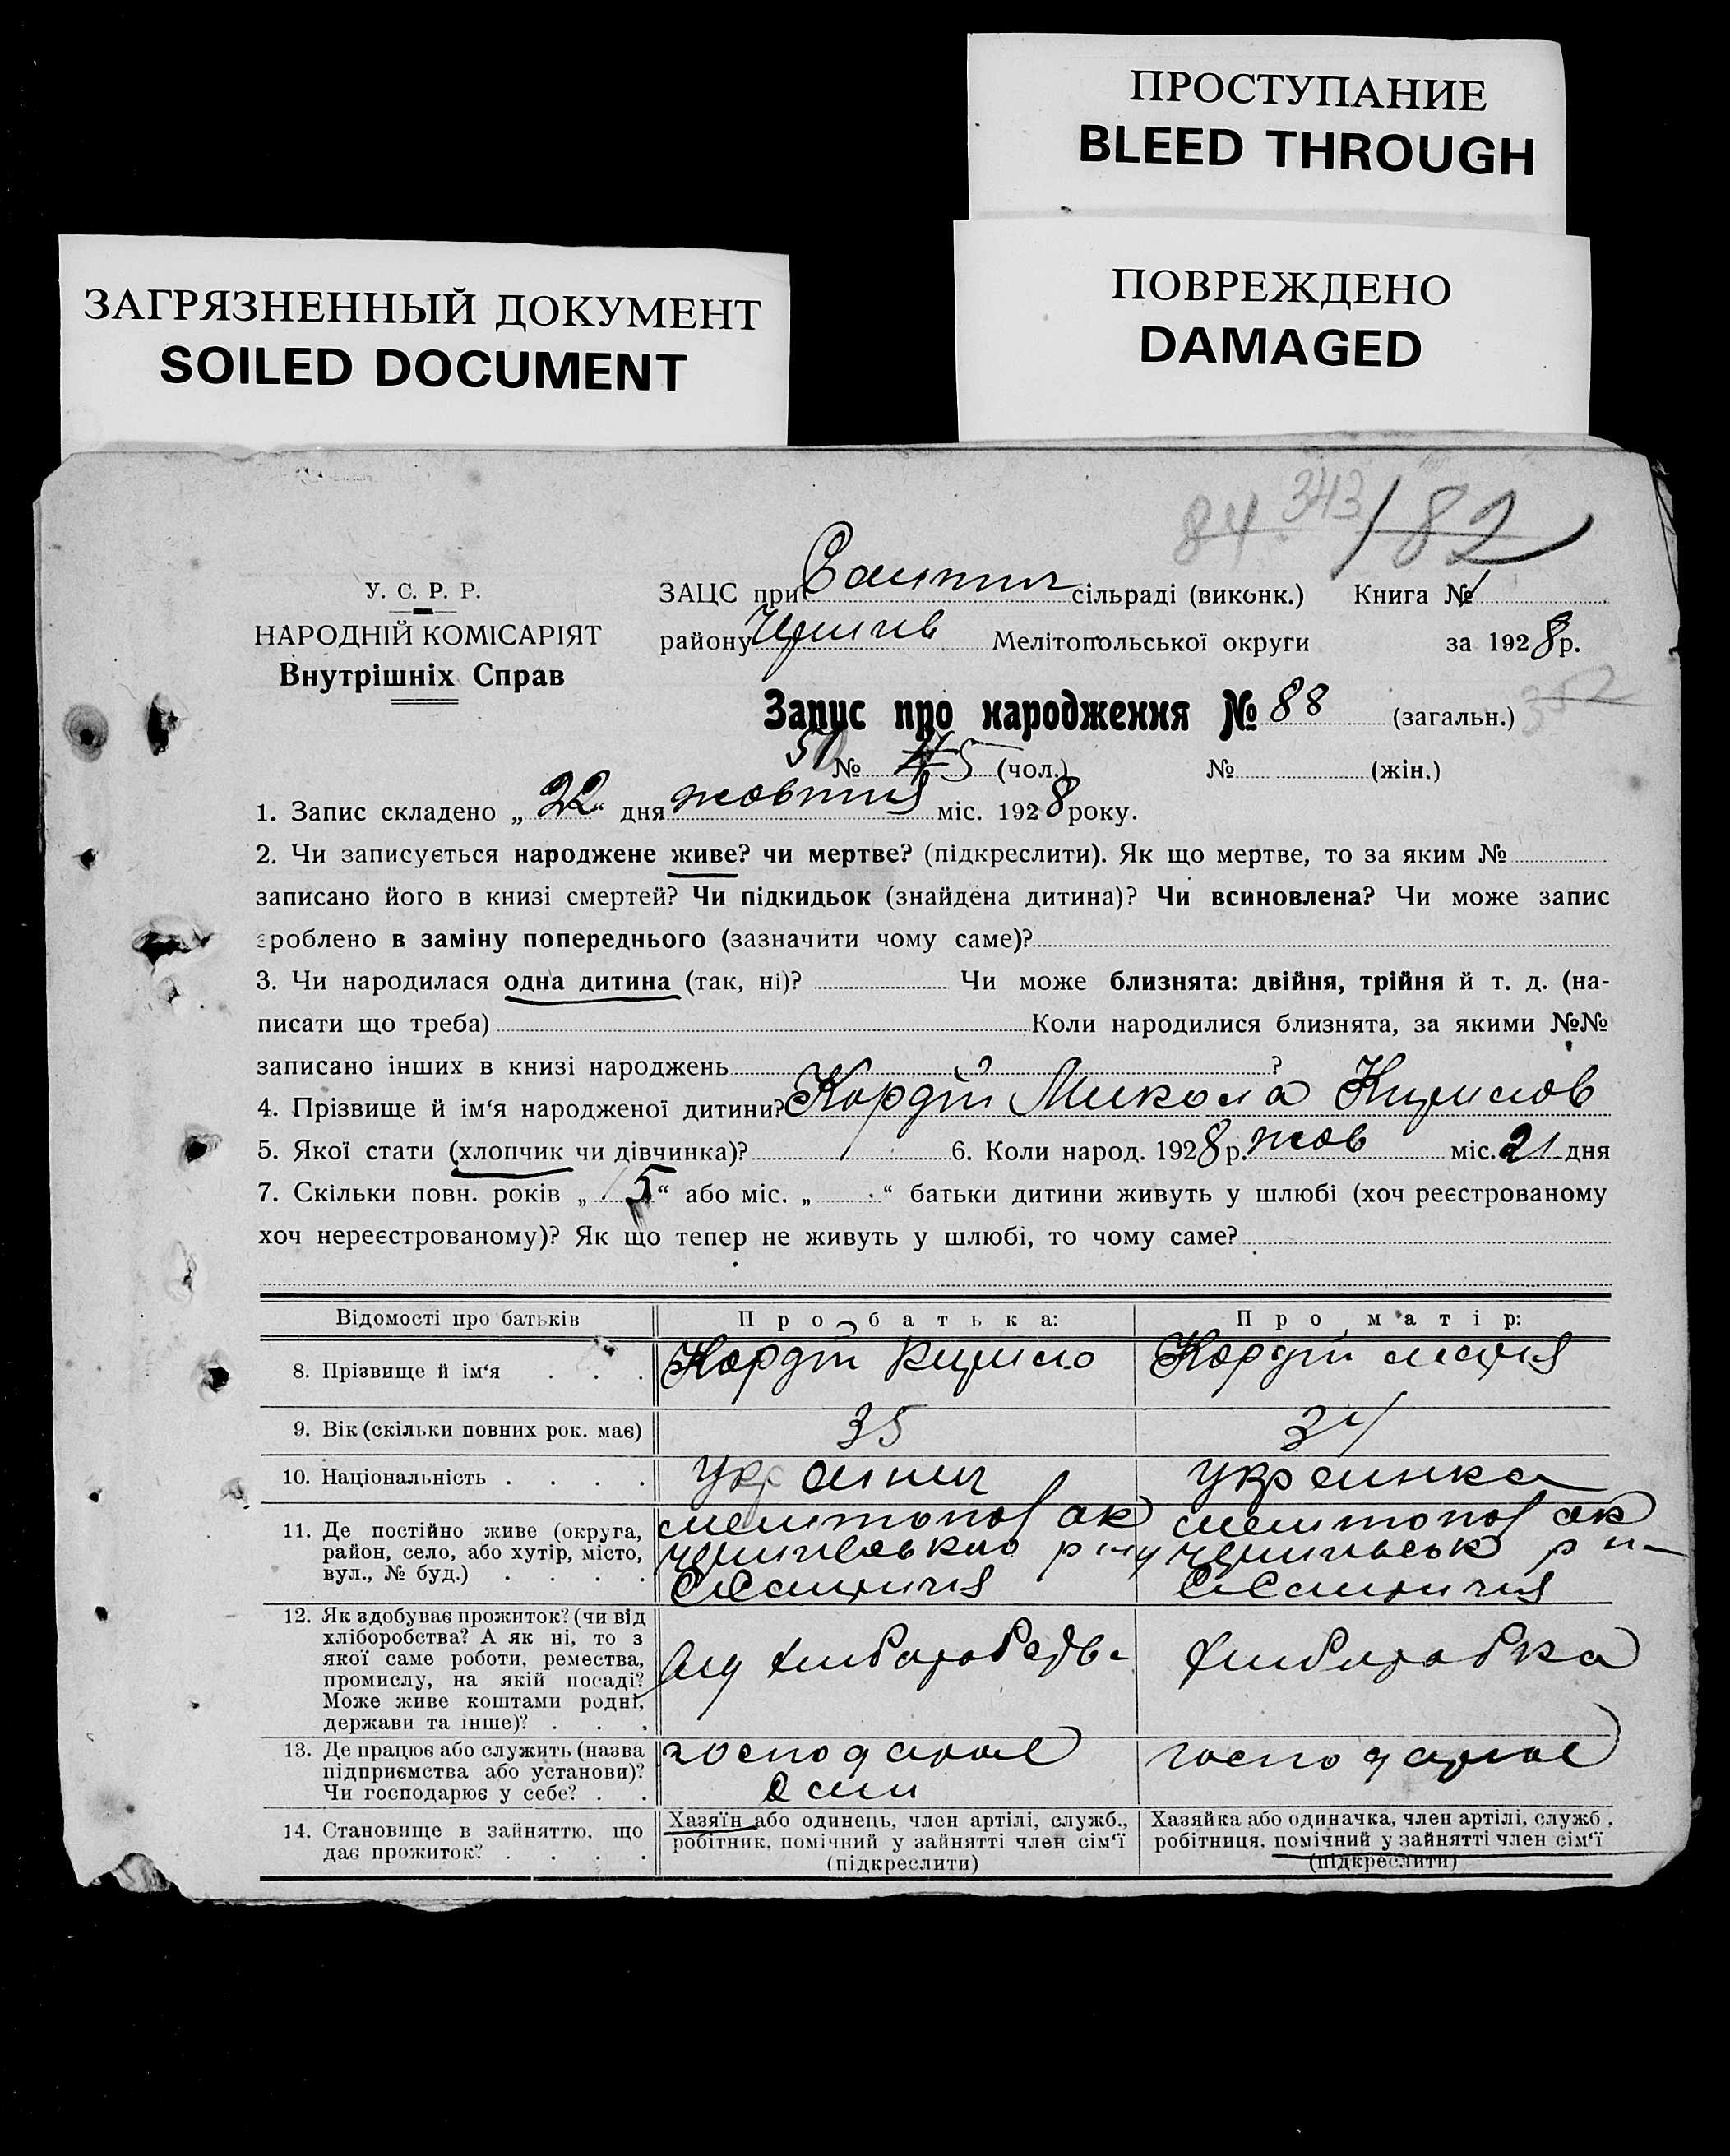 ПРОСТУПАНИЕ
BLEED THROUGH
ЗАГРЯЗНЕННЫЙ ДОКУМЕНТ
SOILED DOCUMENT
ПОВРЕЖДЕНО
DAMAGED
84 343 182
У. С. Р. Р.
НАРОДНІЙ КОМІСАРІЯТ
Внутрішніх Справ
ЗАЦС при сільраді (виконк.) Книга № 1
району Черніг Мелітопольської округи за 1928 р.
Запис про народження № 88 (загальн.) 352
№ 45 (чол.) № (жін.)
1. Запис складено „22“ дня жовтня міс. 1928 року.
2. Чи записується народжене живе? чи мертве? (підкреслити). Як що мертве, то за яким №
записано його в книзі смертей? Чи підкидьок (знайдена дитина)? Чи всиновлена? Чи може запис
зроблено в заміну попереднього (зазначити чому саме)?
3. Чи народилася одна дитина (так, ні)? Чи може близнята: двійня, трійня й т. д. (на-
писати що треба) Коли народилися близнята, за якими №№
записано інших в книзі народжень ?
4. Прізвище й ім‘я народженої дитини? Кордій Микола Кирилов
5. Якої стати (хлопчик чи дівчинка)? 6. Коли народ. 1928 р. жов міс. 21 дня
7. Скільки повн. років „15“ або міс. „ “ батьки дитини живуть у шлюбі (хоч реєстрованому
хоч нереєстрованому)? Як що тепер не живуть у шлюбі, то чому саме?
Відомості про батьків Про батька: Про матір:
8. Прізвище й ім‘я . . . Кордій Кирило Кордій Марія
9. Вік (скільки повних рок. має) 35 34
10. Національність . . . . Українець Українка
11. Де постійно живе (округа, район, село, або хутір, місто, вул., № буд.) . . . . Мелітопол ок Мелітопол ок
12. Як здобуває прожиток? (чи від
хліборобства? А як ні, то з
якої саме роботи, ремества,
промислу, на якій посаді?
Може живе коштами родні,
держави та інше)? . . . Від хліборобства Хліборобка
13. Де працює або служить (назва
підприємства або установи)?
Чи господарює у себе? . . господарює господарює
14. Становище в зайняттю, що
дає прожиток? . . . .
Хазяїн або одинець, член артілі, служб.,
робітник, помічний у зайнятті член сім‘ї
(підкреслити)
Хазяйка або одиначка, член артілі, служб.,
робітниця, помічний у зайнятті член сім‘ї
(підкреслити)